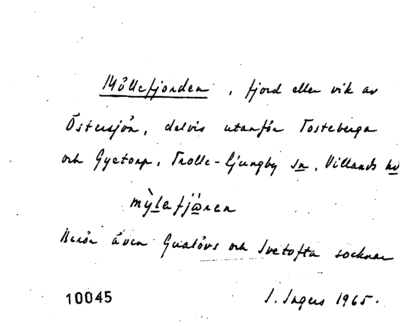 Möllefjorden, fjord eller vik av
Östersjön, delvis utanför Tosteberga
och Gyetorp, Trolle-Ljungby sn, Villands hd
Berör även Gualövs och Ivetofta socknar
10045 I. Ingers 1965.